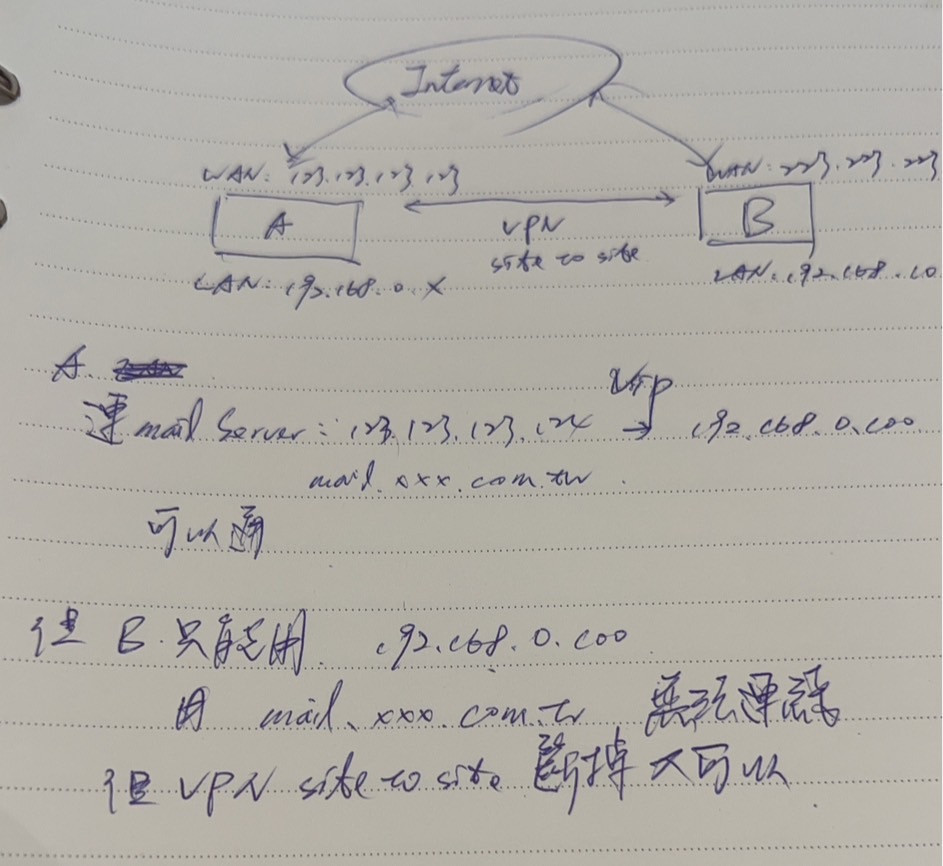 Internet
WAN: 123.123.123.123
WAN: 223.223.223
A
VPN
site to site
B
LAN: 192.168.0.X
LAN: 192.168.10
A.
VIP
連 mail Server: 123.123.123.124 → 192.168.0.100
mail.xxx.com.tw
可以通
但 B 只能用 192.168.0.100
用 mail.xxx.com.tw 無法連線
但 VPN site to site 斷掉又可以